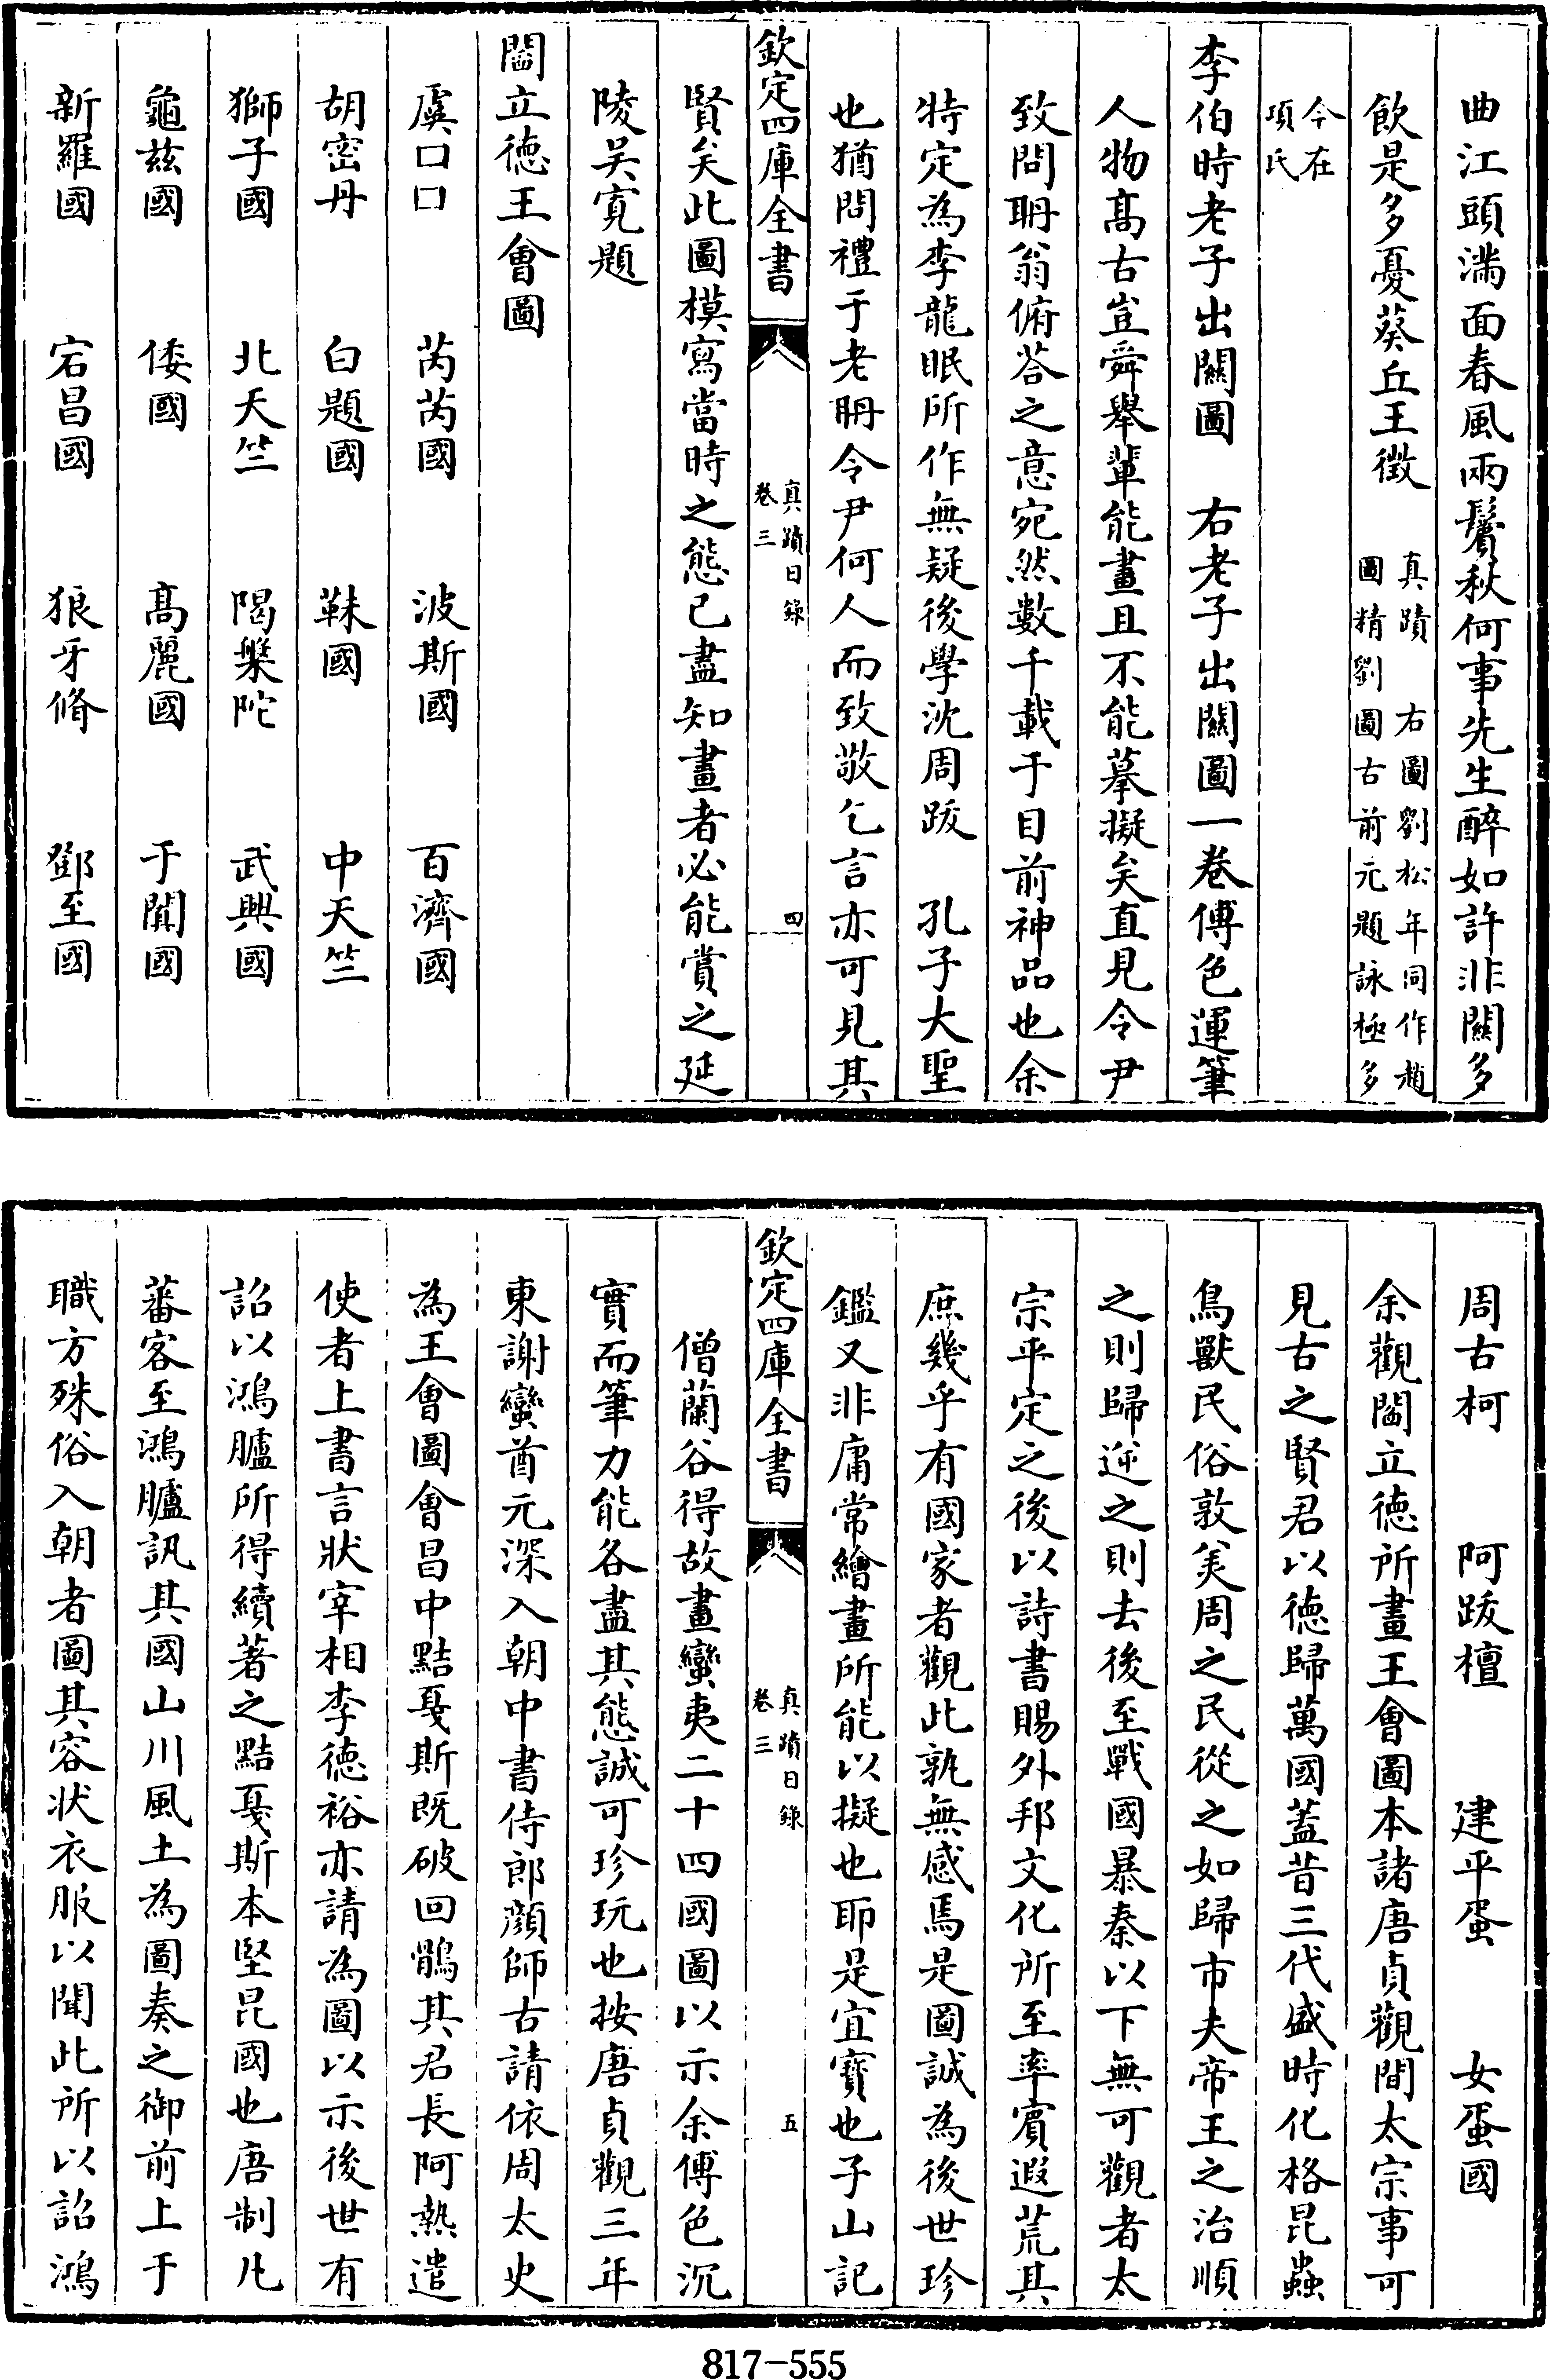 曲江頭滿面春風兩鬢秋何事先生醉如許非關多
飲是多憂葵丘王徵 真蹟 右圖劉松年同作趙
圖精劉圖古前元題詠極多
今在
項氏
李伯時老子出關圖 右老子出關圖一卷傅色運筆
人物髙古豈舜舉輩能畫且不能摹擬矣直見令尹
致問聃翁俯荅之意宛然數千載于目前神品也余
特定為李龍眠所作無疑後學沈周跋 孔子大聖
也猶問禮于老聃令尹何人而致敬乞言亦可見其
欽定四庫全書
真蹟日録
卷三
四
賢矣此圖模寫當時之態已盡知畫者必能賞之延
陵吴寛題
閻立徳王㑹圖
虞口口 芮芮國 波斯國 百濟國
胡密丹 白題國 靺國 中天竺
獅子國 北天竺 陽槃陀 武興國
龜兹國 倭國 髙麗國 于闐國
新羅國 宕昌國 狼牙脩 鄧至國
周古柯 阿跋檀 建平蜑 女蜑國
余觀閻立徳所畫王㑹圖本諸唐貞觀間太宗事可
見古之賢君以徳歸萬國葢昔三代盛時化格昆蟲
鳥獸民俗敦美周之民從之如歸市夫帝王之治順
之則歸逆之則去後至戰國暴秦以下無可觀者太
宗平定之後以詩書賜外邦文化所至率賓遐荒其
庶幾乎有國家者觀此孰無感焉是圖誠為後世珍
鑑又非庸常繪畫所能以擬也耶是宜寳也子山記
欽定四庫全書
真蹟日録
卷三
五
僧蘭谷得故畫蠻夷二十四國圖以示余傅色沉
實而筆力能各盡其態誠可珍玩也按唐貞觀三年
東謝蠻酋元深入朝中書侍郎顔師古請依周太史
為王㑹圖㑹昌中黠戛斯既破回鶻其君長阿熱遣
使者上書言狀宰相李徳裕亦請為圖以示後世有
詔以鴻臚所得續著之黠戛斯本堅昆國也唐制凡
蕃客至鴻臚訊其國山川風土為圖奏之御前上于
職方殊俗入朝者圖其容状衣服以聞此所以詔鴻
817-555